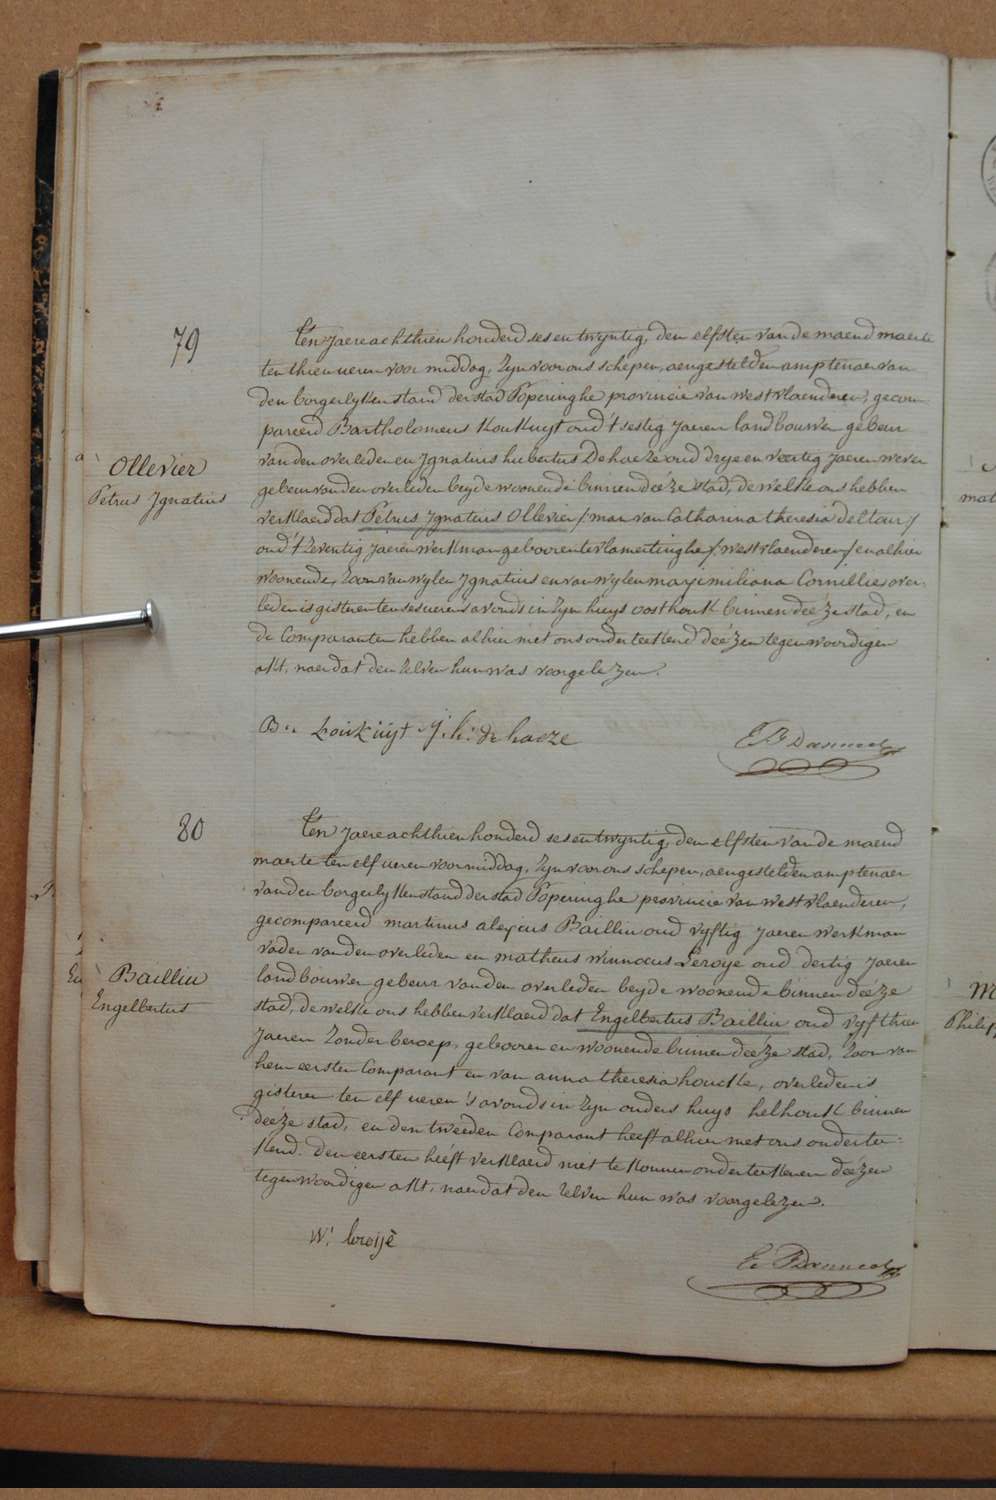 79
Ollevier
Petrus Ignatius
Ten Jaere achthien honderd sesentwyntig, den elfsten van de maend maerte
ten thien ueren voormiddag, zyn voor ons schepen, aengestelden amptenaer van
den borgerlyken stand der stad Poperinghe provincie van westvlaenderen, gecom-
pareerd Bartholomeus Koukuyt oud 't sestig jaeren landbouwer gebeur
van den overleden en Ignatius hubertus Dehaeze oud drye en veertig jaeren wever
gebeur van den overleden beyde woonende binnen deéze stad, de welke ons hebben
verklaerd dat Petrus Ignatius Ollevier /man van Catharina theresia Deltour/
oud 't zeventig jaeren werkman gebooren te vlamertinghe /westvlaenderen/ en alhier
woonende, zoon van wylen Ignatius en van wylen maximiliana Cornillie, over-
leden is gisteren ten ses ueren 's avonds in zyn huys oosthouk binnen deéze stad, en
de Comparanten hebben alhier met ons onderteekend deézen tegenwoordigen
akt, naer dat den zelven hun was voorgelezen.
Koukuyt J. h. de haeze
80
Bailliu
Engelbertus
Ten Jaere achthien honderd sesentwyntig, den elfsten van de maend
maerte ten elf ueren voormiddag, zyn voor ons schepen, aengestelden amptenaer
van den borgerlyken stand der stad Poperinghe provincie van westvlaenderen,
gecompareerd martinus alexius Bailliu oud vyftig jaeren werkman
vader van den overleden en matheus winnocus Leroye oud dertig jaeren
landbouwer gebeur van den overleden beyde woonende binnen deéze
stad, de welke ons hebben verklaerd dat Engelbertus Bailliu oud vyfthien
jaeren zonder beroep, gebooren en woonende binnen deéze stad, zoon van
hem eersten Comparant en van anna theresia houcke, overleden is
gisteren ten elf ueren 's avonds in zyn ouders huys helhouk binnen
deéze stad, en den tweeden Comparant heeft alhier met ons onderte-
kend. den eersten heéft verklaerd niet te konnen onderteekenen deézen
tegenwoordigen akt, naer dat den zelven hun was voorgelezen.
W. leroije